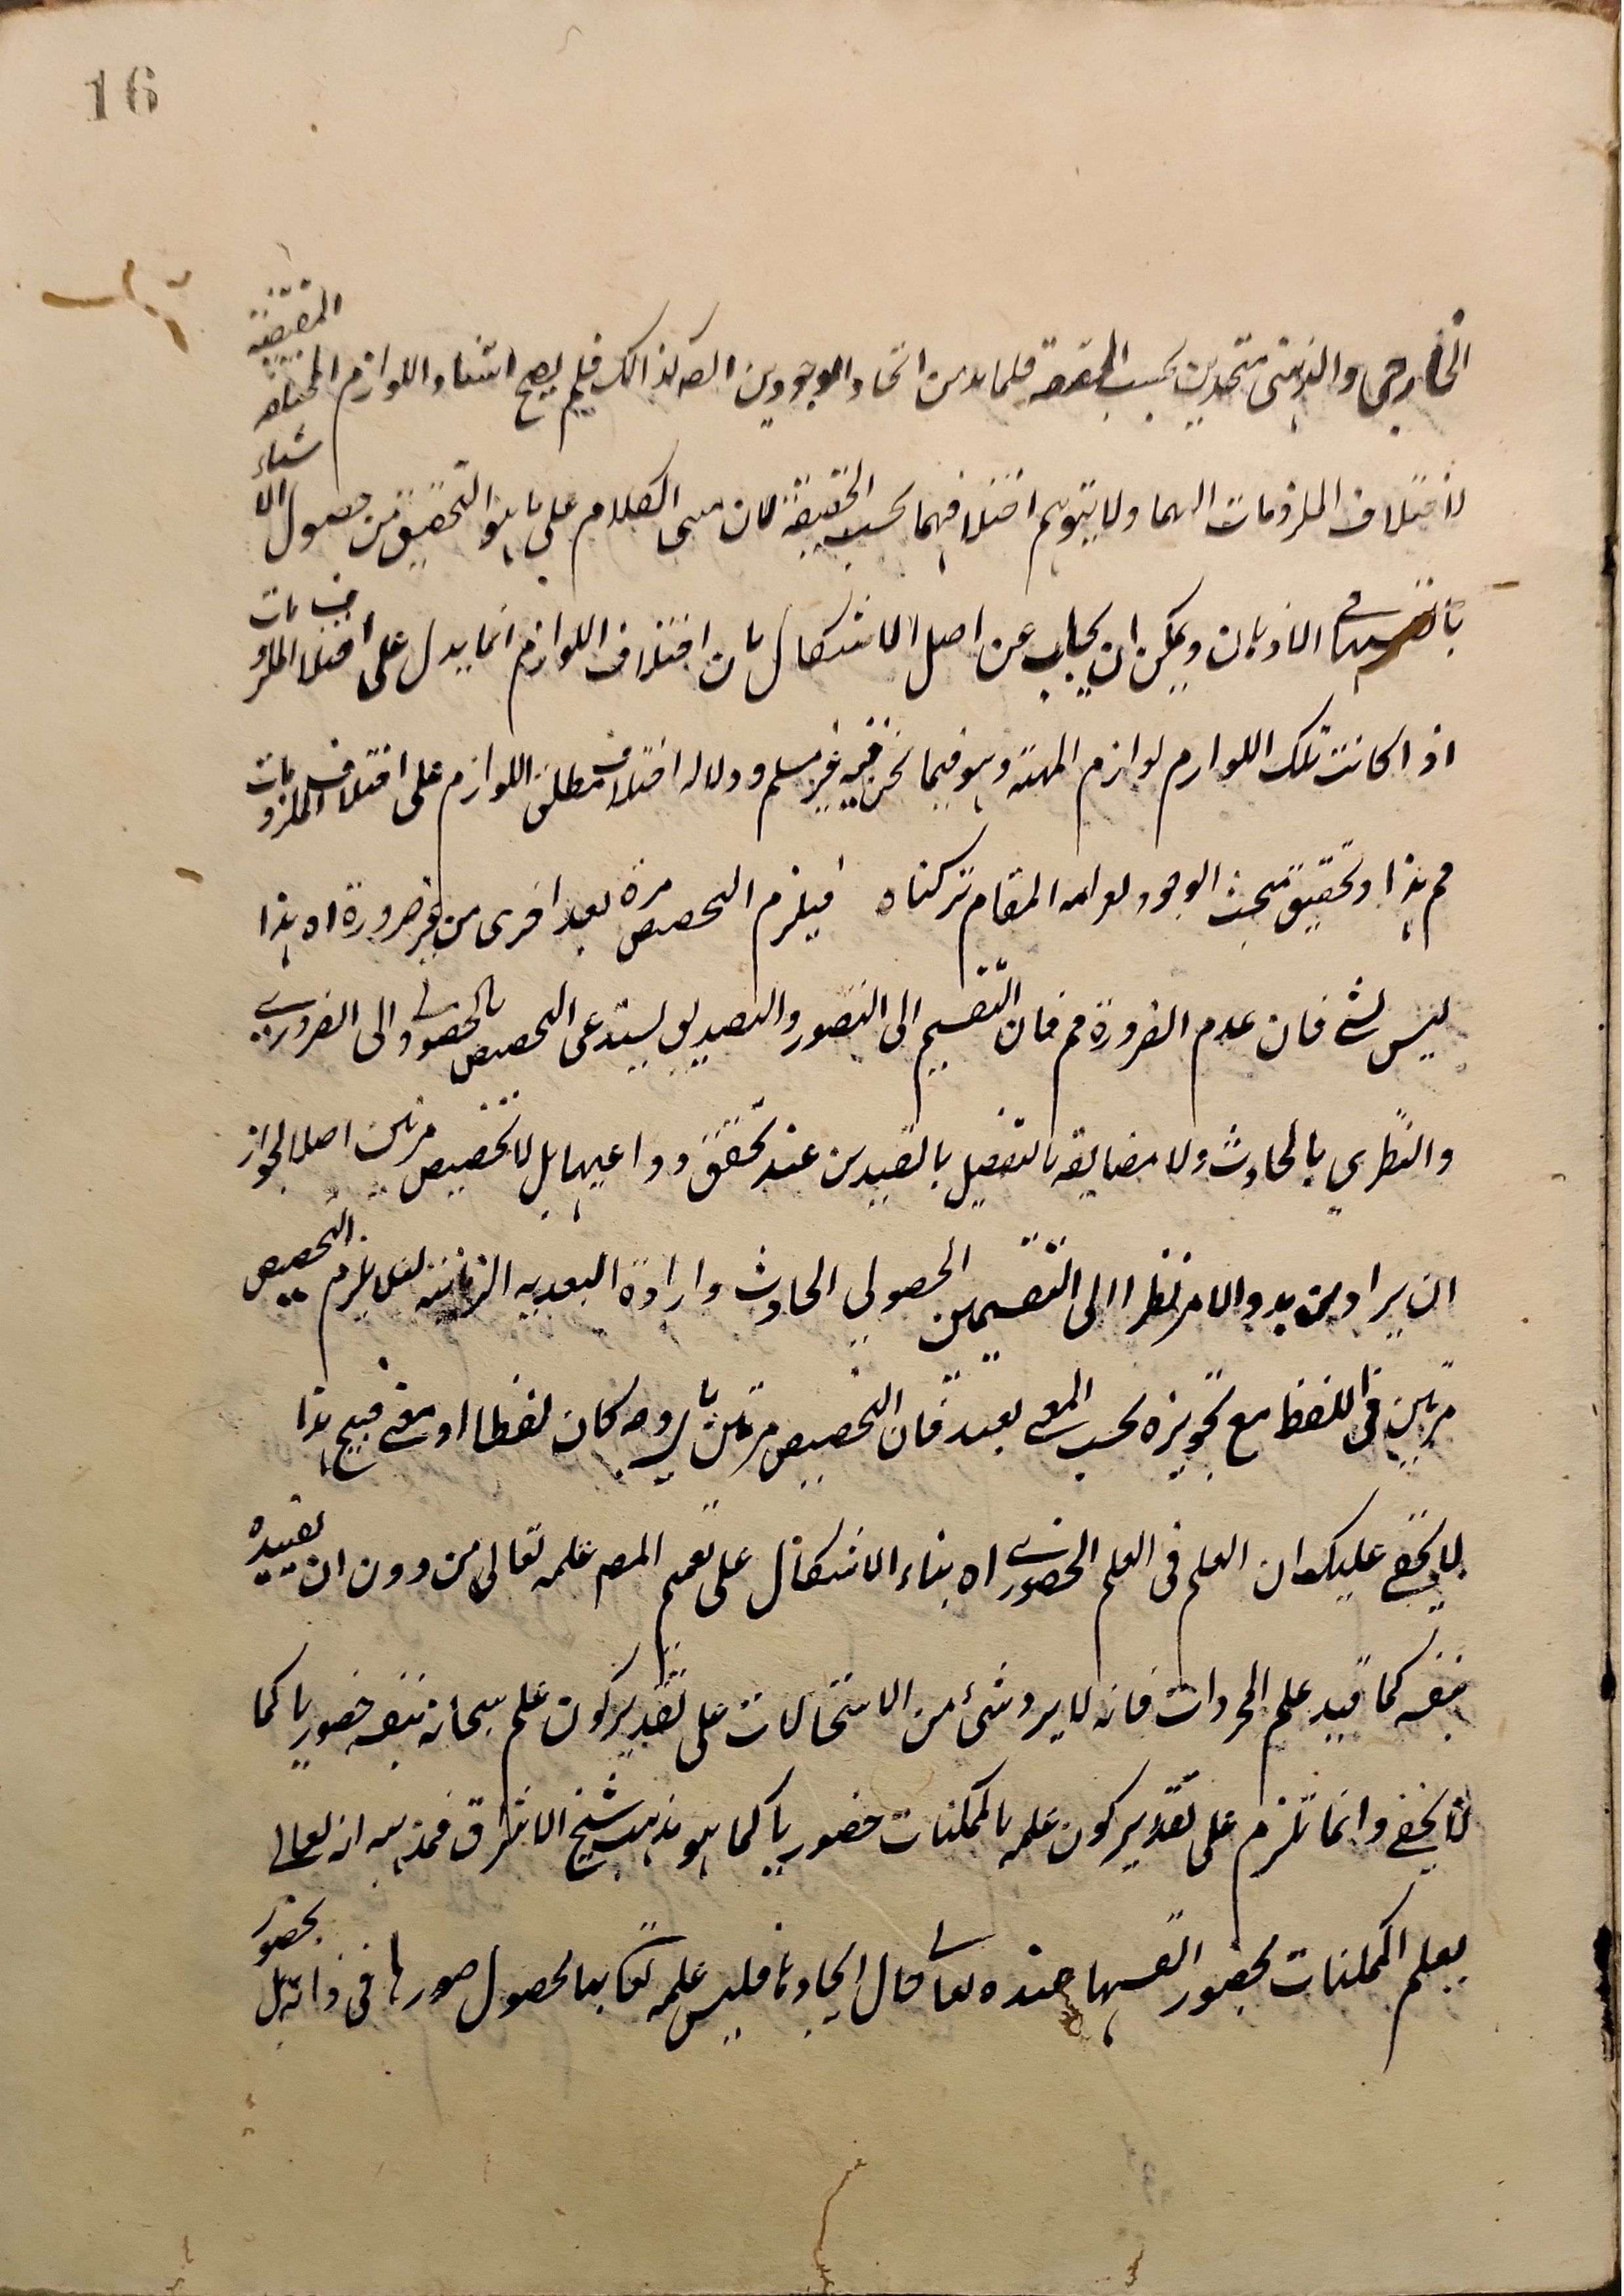 16
الخارجي والذهني متحدين بحسب الحقيقة فلما بد من اتحاد الوجودين الصـ كذالك فلم يصح استناد اللوازم المختلفة المقتضية
لاختلاف الملزومات اليهما ولا يتوهم اختلافهما بحسب الحقيقة لان مبنى الكلام على ما هو التحقيق من حصول الاشياء
بانفسها في الاذهان ويمكن ان يجاب عن اصل الاشكال بان اختلاف اللوازم انما يدل على اختلاف الملزومات
اذا كانت تلك اللوازم لوازم المهية وهو فيما نحن فيه غير مسلم ودلالة اختلاف مطلق اللوازم على اختلاف الملزومات
مم هذا وتحقيق مبحث الوجود المقام تركناه فيلزم التخصيص مرة بعد اخرى من غير ضرورة اه هذا
ليس بشئ فان عدم الضرورة مم فان التقسيم الى التصور والتصديق يستدعى التخصيص بالحصولي والى الضروري
والنظري بالحادث ولا مضايقة بالتفصيل بالقيدين عند تحقق دواعيها بل لا تخصيص مرتين اصلا لجواز
ان يراد من بدو الامر نظرا الى التقسيمين الحصولي الحادث وارادة البعدية الزمانية لئلا يلزم التخصيص
مرتين في اللفظ مع تجويزه بحسب المعنى بعيد فان التخصيص مرتين باي وجه كان لفظا او معنى قبيح هذا
لا يخفى عليك ان العلم في العلم الحضوري اه بناء الاشكال على تعميم المصـ علمه تعالى من دون ان تقييده
بنفسه كما قيد علم المجردات فانه لا يرد شئ من الاستحالات على تقدير كون علم سبحانه بنفسه حضوريا كما
لا يخفى وانما تلزم على تقدير كون علمه بالممكنات حضوريا كما هو مذهب شيخ الاشراق فمذهبه انه تعالى
يعلم الممكنات بحضور انفسها عنده تعالى حال ايجادنا فليس علمه تعا بها بحصول صورها في ذاته بل بحضور